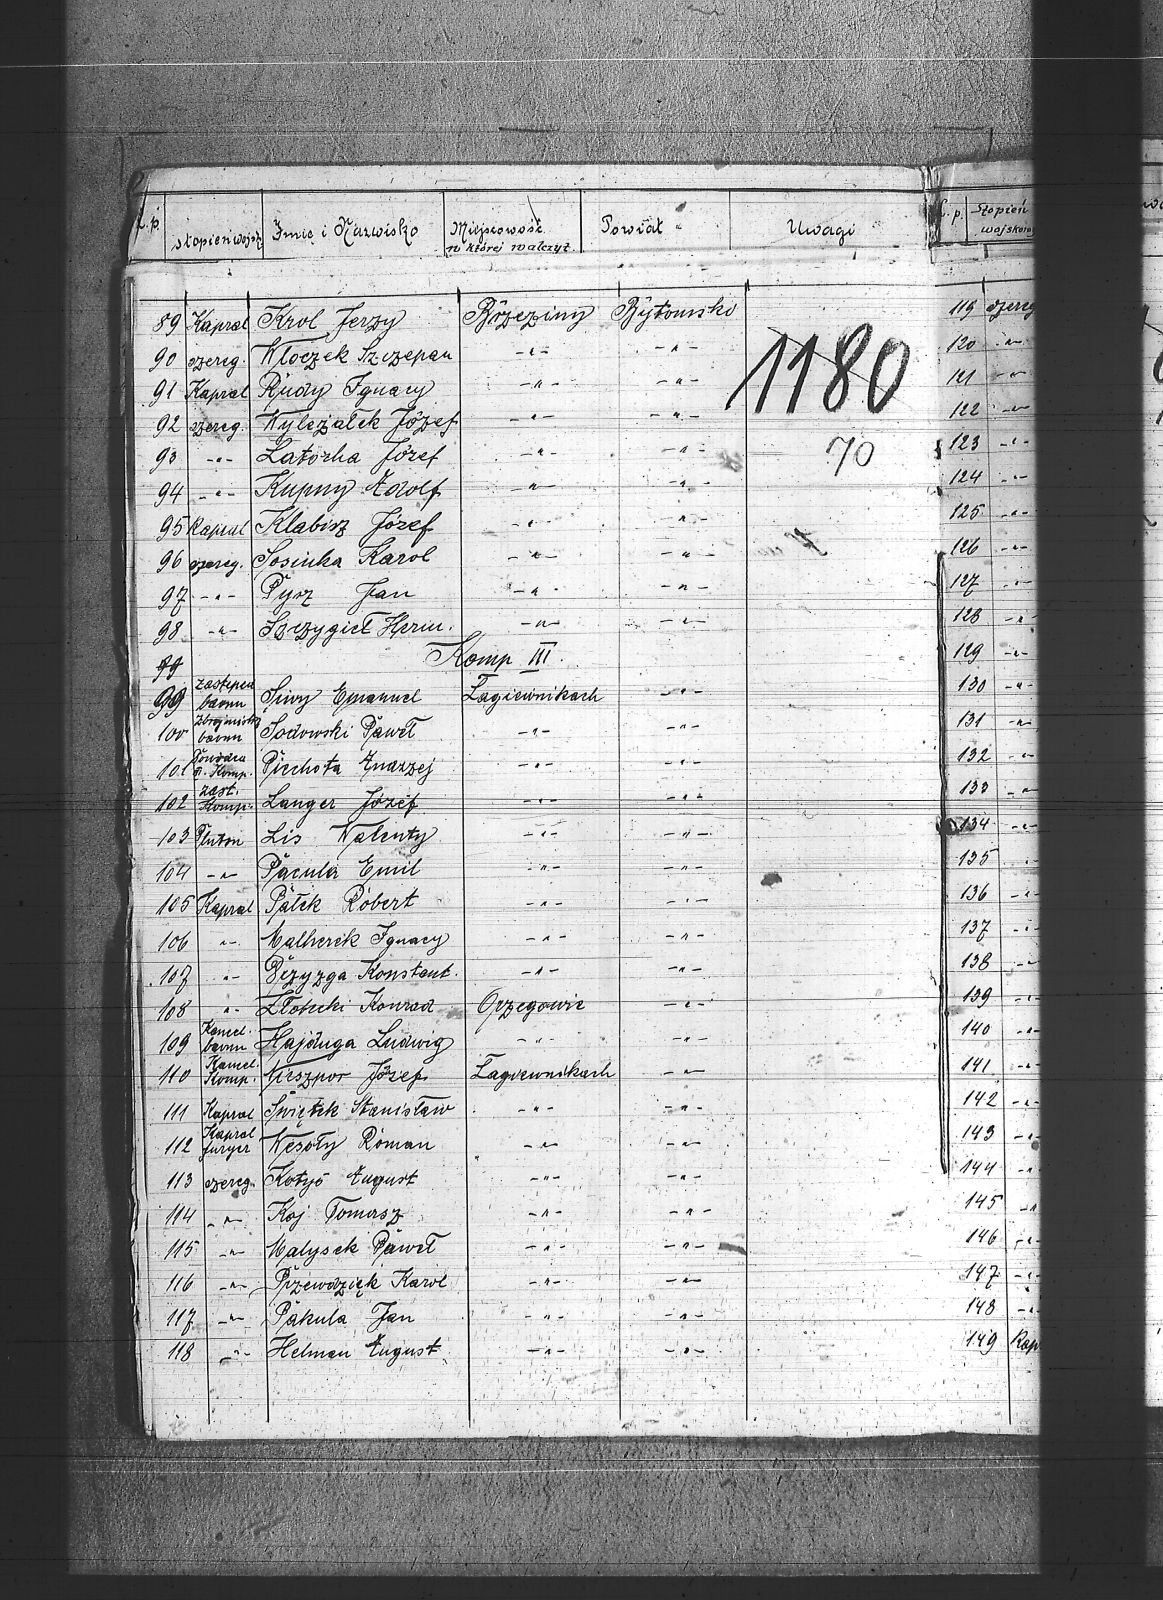 L.p. Stopień wojsk. Imię i Nazwisko Miejscowość w której walczył Powiat Uwagi
89 Kapral Krol Jerzy Brzeziny Bytomsko
90 szereg. Wloczek Szczepan -"- -"-
91 Kapral Rudy Ignacy -"- -"-
1180
92 szereg. Wyleżalek Józef -"- -"-
93 -"- Latocha Józef -"- -"-
70
94 -"- Kupny Adolf -"- -"-
95 Kapral Klabisz Józef -"- -"-
96 szereg. Sosinka Karol -"- -"-
97 -"- Pysz Jan -"- -"-
98 -"- Szczygieł Herm. -"- -"-
99 Komp III.
99 Sowy Emanuel Łagiewnikach -"-
100 Sodowski Paweł -"- -"-
101 Piechota Andrzej -"- -"-
102 zast. Komp. Langer Józef -"- -"-
103 Pluton Lis Walenty -"- -"-
104 -"- Pacula Emil -"- -"-
105 Kapral Pałek Robert -"- -"-
106 -"- Malherek Ignacy -"- -"-
107 -"- Konstant. -"- -"-
108 -"- Złotecki Konrad Orzegowie -"-
109 Kancel. baonu Hajduga Ludwig -"- -"-
110 Kancel. Komp. Nieszpor Józef Łagiewnikach -"-
111 Kapral Świętek Stanisław -"- -"-
112 Kapral furyer Wesoły Roman -"- -"-
113 szereg. Kotyś August -"- -"-
114 -"- Koj Tomasz -"- -"-
115 -"- Malysek Paweł -"- -"-
116 -"- Przewdzięk Karol -"- -"-
117 -"- Pakula Jan -"- -"-
118 -"- Helman August -"- -"-
L.p. Stopień wojskow
119 szereg
120 -"-
121 -"-
122 -"-
123 -"-
124 -"-
125 -"-
126 -"-
127 -"-
128 -"-
129 -"-
130 -"-
131 -"-
132 -"-
133 -"-
134 -"-
135 -"-
136 -"-
137 -"-
138 -"-
139 -"-
140 -"-
141 -"-
142 -"-
143 -"-
144 -"-
145 -"-
146 -"-
147 -"-
148 -"-
149 Kap